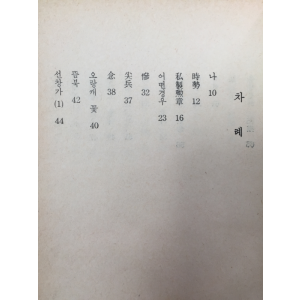 차례
나 10
時勢 12
私製勲章 16
어떤경우 23
慘 32
尖兵 37
念 38
오랑캐꽃 40
광복 42
선창가 (1) 44